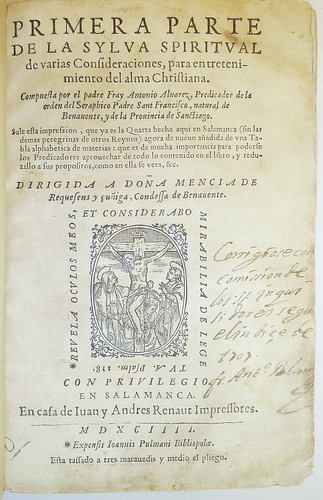 PRIMERA PARTE
DE LA SYLVA SPIRITVAL
de varias Consideraciones, para entreteni-
miento del alma Christiana.
Compuesta por el padre Fray Antonio Aluarez, Predicador de la
orden del Seraphico Padre Sant Francisco, natural de
Benauente, y de la Prouincia de Sanctiago.
Sale esta impression, que ya es la Quarta hecha aqui en Salamanca (sin las
demas peregrinas de otros Reynos) agora de nueuo añadida de vna Ta-
bla alphabetica de materias: que es de mucha importancia para poderse
los Predicadores aprouechar de todo lo contenido en el libro, y redu-
zillo a sus propositos, como en ella se vera, &c.
DIRIGIDA A DOÑA MENCIA DE
Requesens y çuñiga, Condessa de Benauente.
*REVELA OCVLOS MEOS,
ET CONSIDERABO
MIRABILIA DE LEGE
TVA Psalm. 118.
Corrigiose con
comission de
los SS inqui
sidores segun
el indice de
1707.
fr. Antº
CON PRIVILEGIO,
EN SALAMANCA.
En casa de Iuan y Andres Renaut Impressores.
M D XCIIII.
*Expensis Ioannis Pulmani Bibliopolæ.
Esta tassado a tres marauedis y medio el pliego.